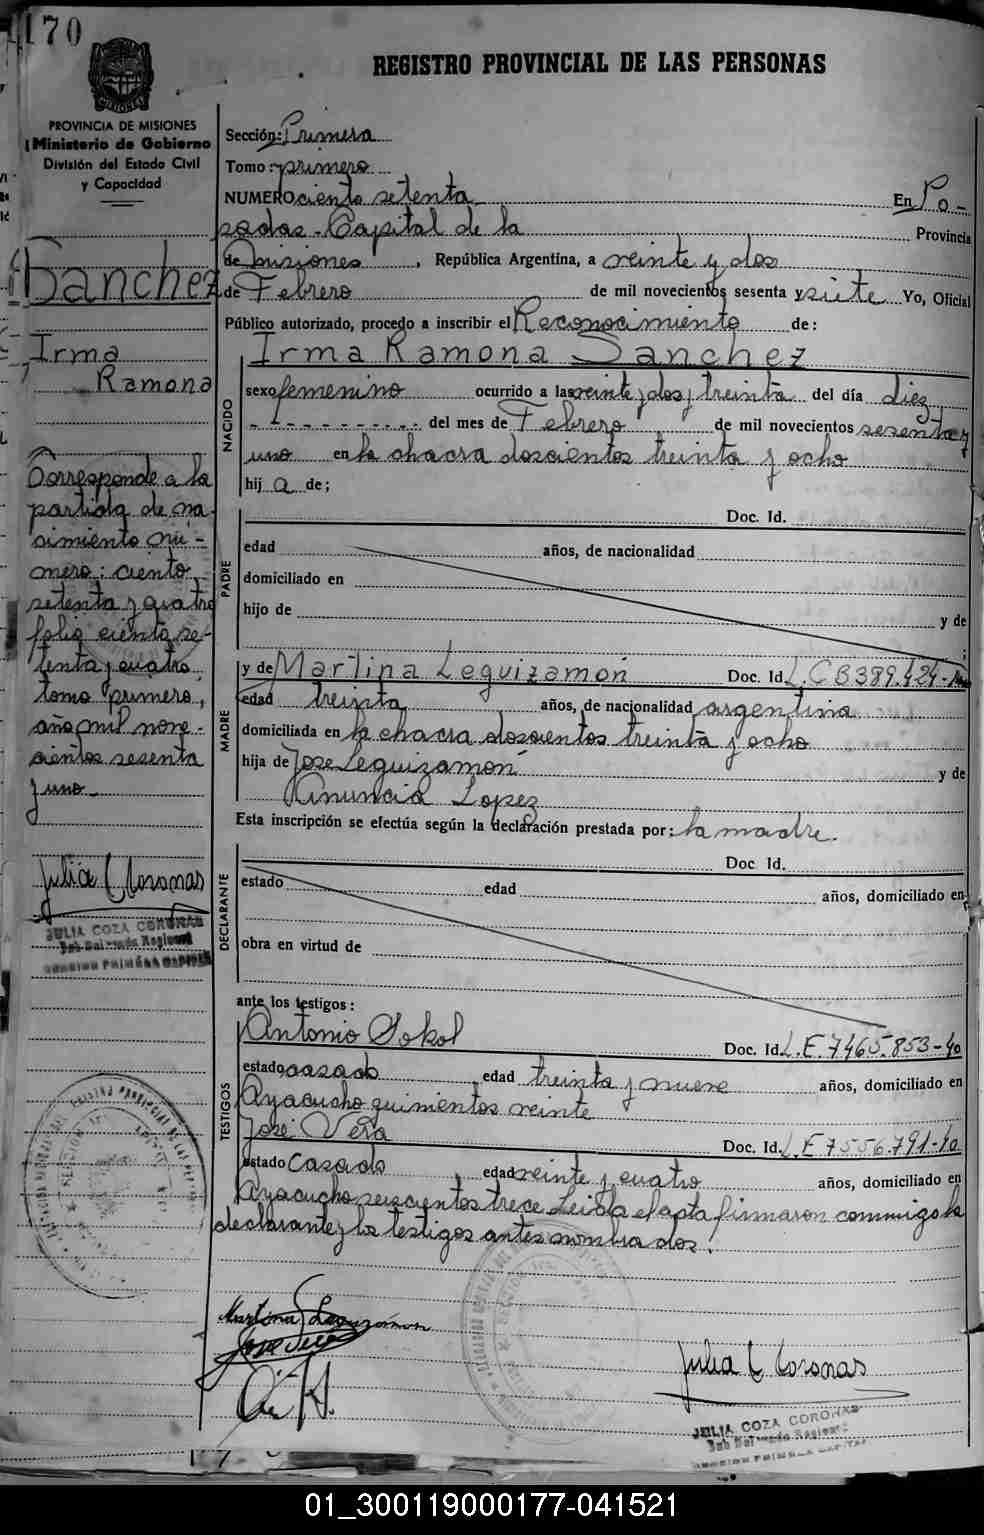 170
REGISTRO PROVINCIAL DE LAS PERSONAS
MISIONES
PROVINCIA DE MISIONES
Ministerio de Gobierno
División del Estado Civil
y Capacidad
Sanchez
Irma
Ramona
Corresponde a la
partida de na-
cimiento nú-
mero: ciento
setenta y cuatro
folio ciento se-
tenta y cuatro
tomo primero,
año mil nove-
cientos sesenta
y uno.
Julia C Coronas
JULIA COZA CORONAS
SECCION PRIMERA CAPITAL
Sección: Primera
Tomo: primero
NUMERO ciento setenta En Po-
sadas - Capital de la Provincia
de Misiones, República Argentina, a veinte y dos
de Febrero de mil novecientos sesenta y siete Yo, Oficial
Público autorizado, procedo a inscribir el Reconocimiento de:
NACIDO
Irma Ramona Sanchez
sexo femenino ocurrido a las veinte y dos y treinta del día diez
del mes de Febrero de mil novecientos sesenta y
uno en la chacra doscientos treinta y ocho
hij a de;
PADRE
Doc. Id.
edad años, de nacionalidad
domiciliado en
hijo de y de
;
MADRE
y de Martina Leguizamon Doc. Id. L.C 3389.424-
edad treinta años, de nacionalidad argentina
domiciliada en la chacra doscientos treinta y ocho
hija de Jose Leguizamon y de
Rinuncia Lopez
Esta inscripción se efectúa según la declaración prestada por: la madre.
DECLARANTE
Doc. Id.
estado edad años, domiciliado en
obra en virtud de
ante los testigos:
TESTIGOS
Antonio Sokol Doc. Id. L.E.7465.853-
estado casado edad treinta y nueve años, domiciliado en
Ayacucho quinientos veinte
José Vera Doc. Id. L.E 7556.791-
estado casado edad veinte y cuatro años, domiciliado en
Ayacucho seiscientos trece. Leida el acta firmaron conmigo la
declarante y los testigos antes nombrados.
Martina Leguizamon
Jose Vera
Julia C Coronas
JULIA COZA CORONAS
01_300119000177-041521